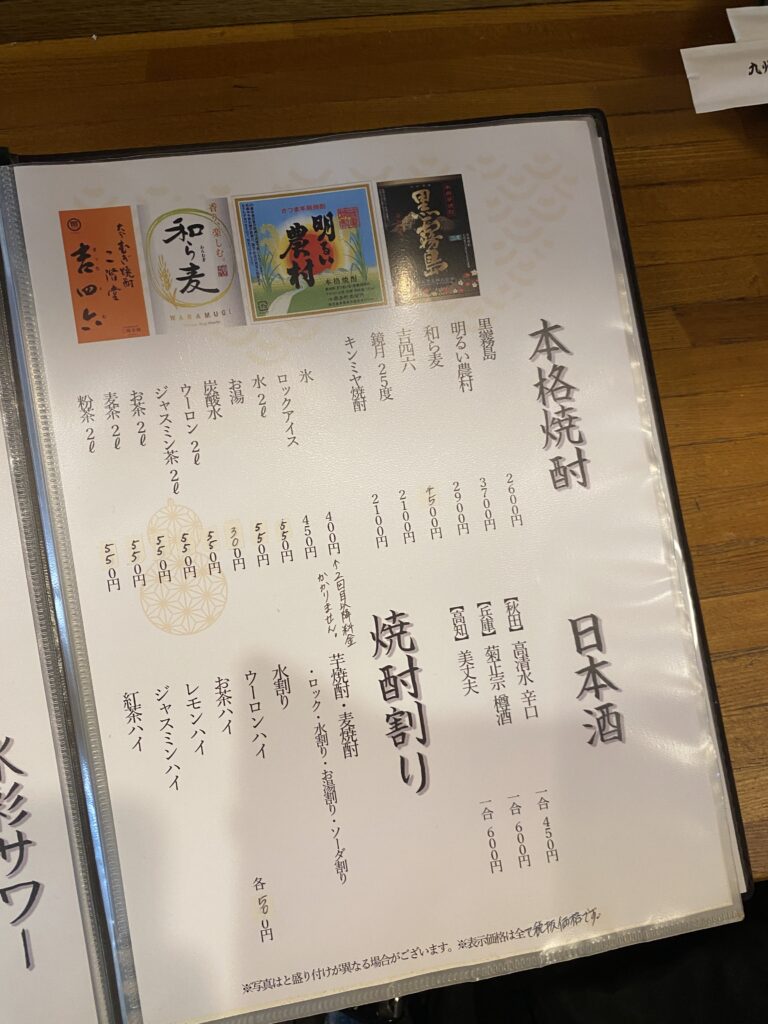 九州
大分むぎ焼酎
二階堂
吉四六
香り、楽しむ。
和ら麦
WARAMUGI
さつま芋焼酎
明るい
農村
本格焼酎
本格芋焼酎
黒霧島
本格焼酎
黒霧島 2600円
明るい農村 3700円
和ら麦 2900円
吉四六 4500円
鏡月25度 2100円
キンミヤ焼酎 2100円
氷 400円 ↑2回目以降料金
かかりません。
ロックアイス 450円
水2ℓ 550円
お湯 550円
炭酸水 300円
ウーロン2ℓ 550円
ジャスミン茶2ℓ 550円
お茶2ℓ 550円
麦茶2ℓ 550円
粉茶2ℓ 550円
日本酒
【秋田】 高清水 辛口 一合 450円
【兵庫】 菊正宗 樽酒 一合 600円
【高知】 美丈夫 一合 600円
焼酎割り
芋焼酎・麦焼酎
・ロック・水割り・お湯割り・ソーダ割り
水割り
ウーロンハイ 各
お茶ハイ
レモンハイ
ジャスミンハイ
紅茶ハイ
※写真はと盛り付けが異なる場合がございます。※表示価格は全て税抜価格です。
水彩サワー